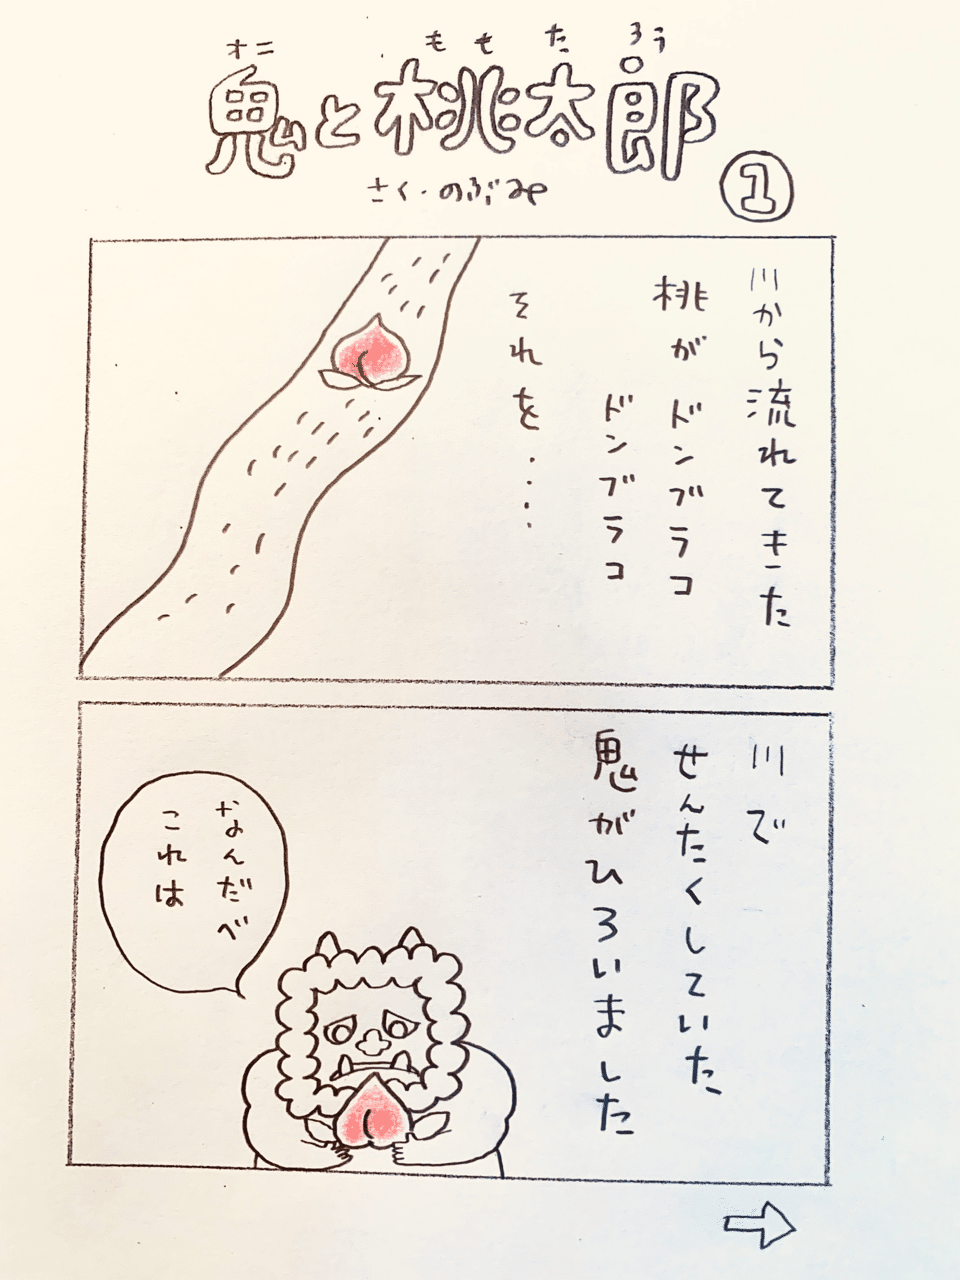 オニ ももたろう
鬼と桃太郎
さく・のぶみ
1
川から流れてきた
桃がドンブラコ
ドンブラコ
それを・・・・
川で
せんたくしていた
鬼がひろいました
なんだべ
これは